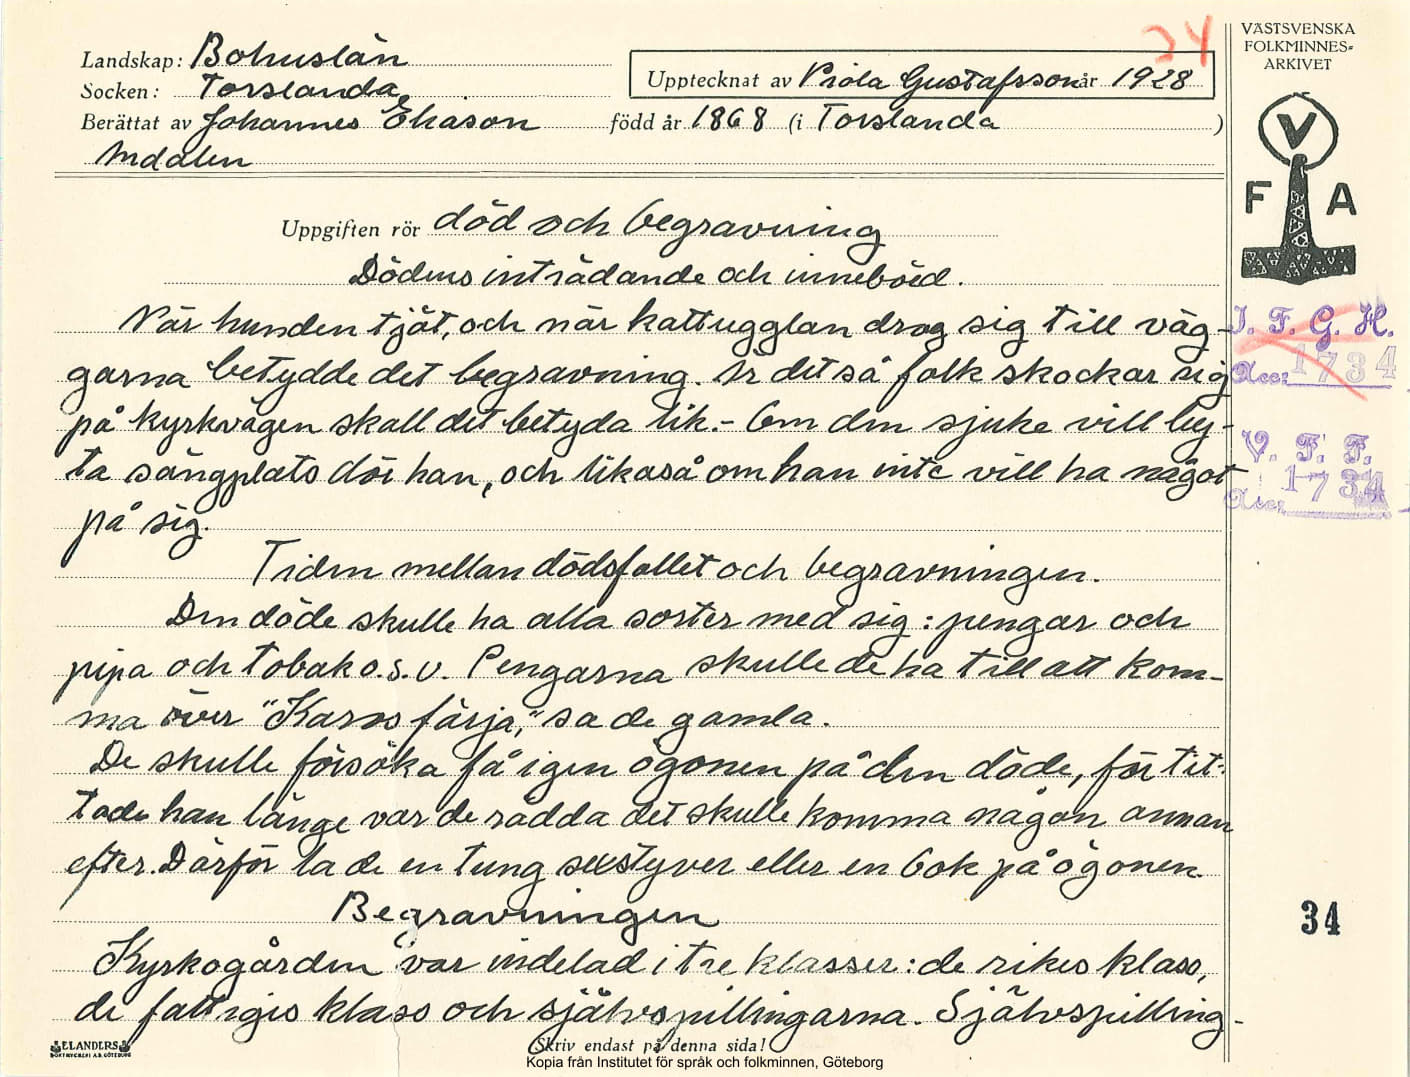 24
VÄSTSVENSKA
FOLKMINNES=
ARKIVET
Landskap: Bohuslän
Socken: Torslanda
Upptecknat av Viola Gustafsson år 1928
Berättat av Johannes Ekason född år 1868 (i Torslanda )
Amdalen
V
F A
Uppgiften rör död och begravning
Dödens inträdande och innebörd.
När hunden tjöt, och när kattugglan drog sig till väg-
garna betydde det begravning. Är det så folk skockar sig
på kyrkvägen skall det betyda lik.- Om den sjuke vill by-
ta sängplats dör han, och likaså om han inte vill ha något
på sig.
Tiden mellan dödsfallet och begravningen.
Den döde skulle ha alla sorter med sig: pengar och
pipa och tobak o.s.v. Pengarna skulle de ha till att kom-
ma över "Karos färja," sa de gamla.
De skulle försöka få igen ögonen på den döde, för tit-
tade han länge var de rädda det skulle komma någon annan
efter. Därför la de en tung sexstyver eller en bok på ögonen.
Begravningen
Kyrkogården var indelad i tre klasser: de rikes klass,
de fattigis klass och självspillingarna. Självspilling-
I. F. G. H.
Acc: 1734
V. F. F.
Acc: 1734
34
ELANDERS
BOKTRYCKERI A.B. GÖTEBORG
Skriv endast på denna sida!
Kopia från Institutet för språk och folkminnen, Göteborg